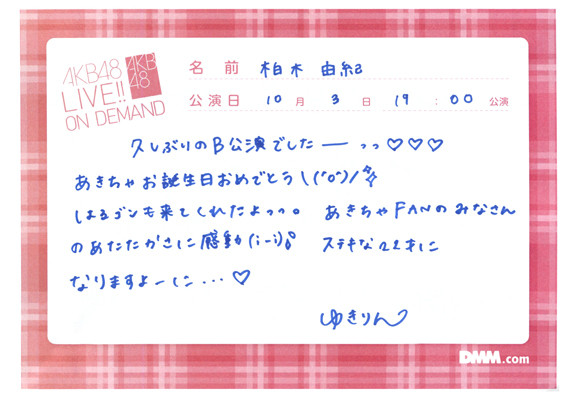 AKB48
LIVE!!
ON DEMAND
AKB
48
名前 柏木 由紀
公演日 10月 3日 19:00公演
久しぶりのB公演でしたーっっ♡♡♡
あきちゃお誕生日おめでとう\(^o^)/
はるゴンも来てくれたよっっ。 あきちゃFANのみなさん
のあたたかさに感動(;-;) ステキな22才に
なりますよーに...♡
ゆきりん
DMM.com